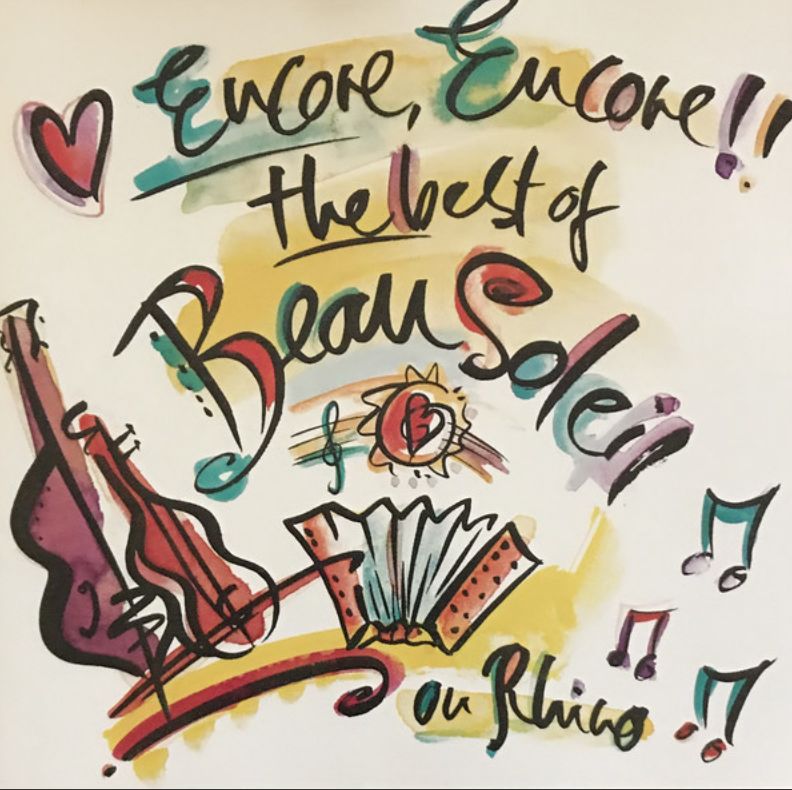 Encore, Encore!!
the best of
Beau Soleil
on Rhino